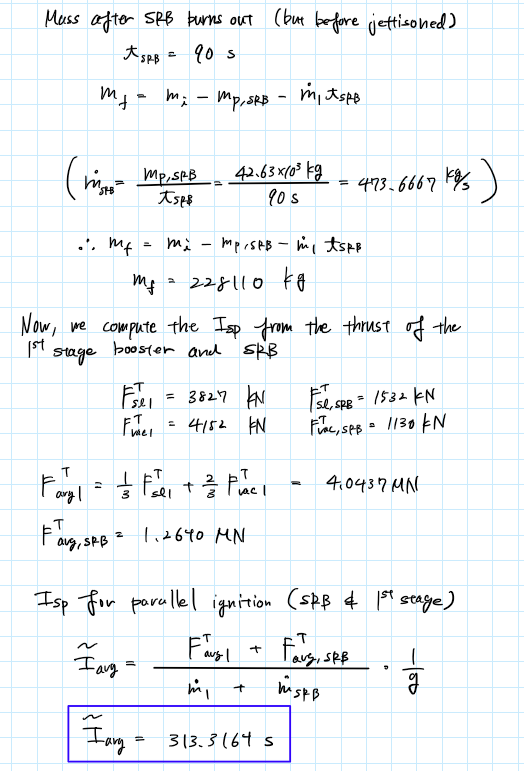 Mass after SRB burns out (but before jettisoned)
t_SRB = 90 s
m_f = m_i - m_p,SRB - ṁ_1 t_SRB
(ṁ_SRB = m_p,SRB / t_SRB = 42.63×10³ kg / 90 s = 473.6667 kg/s)
∴ m_f = m_i - m_p,SRB - ṁ_1 t_SRB
m_f = 228110 kg
Now, we compute the Isp from the thrust of the
1st stage booster and SRB
F^T_sl1 = 3827 kN F^T_sl,SRB = 1532 kN
F^T_vac1 = 4152 kN F^T_vac,SRB = 1130 kN
F^T_avg1 = 1/3 F^T_sl1 + 2/3 F^T_vac1 = 4.0437 MN
F^T_avg,SRB = 1.2640 MN
Isp for parallel ignition (SRB & 1st stage)
Ĩ_avg = (F^T_avg1 + F^T_avg,SRB) / (ṁ_1 + ṁ_SRB) · 1/g
Ĩ_avg = 313.3164 s